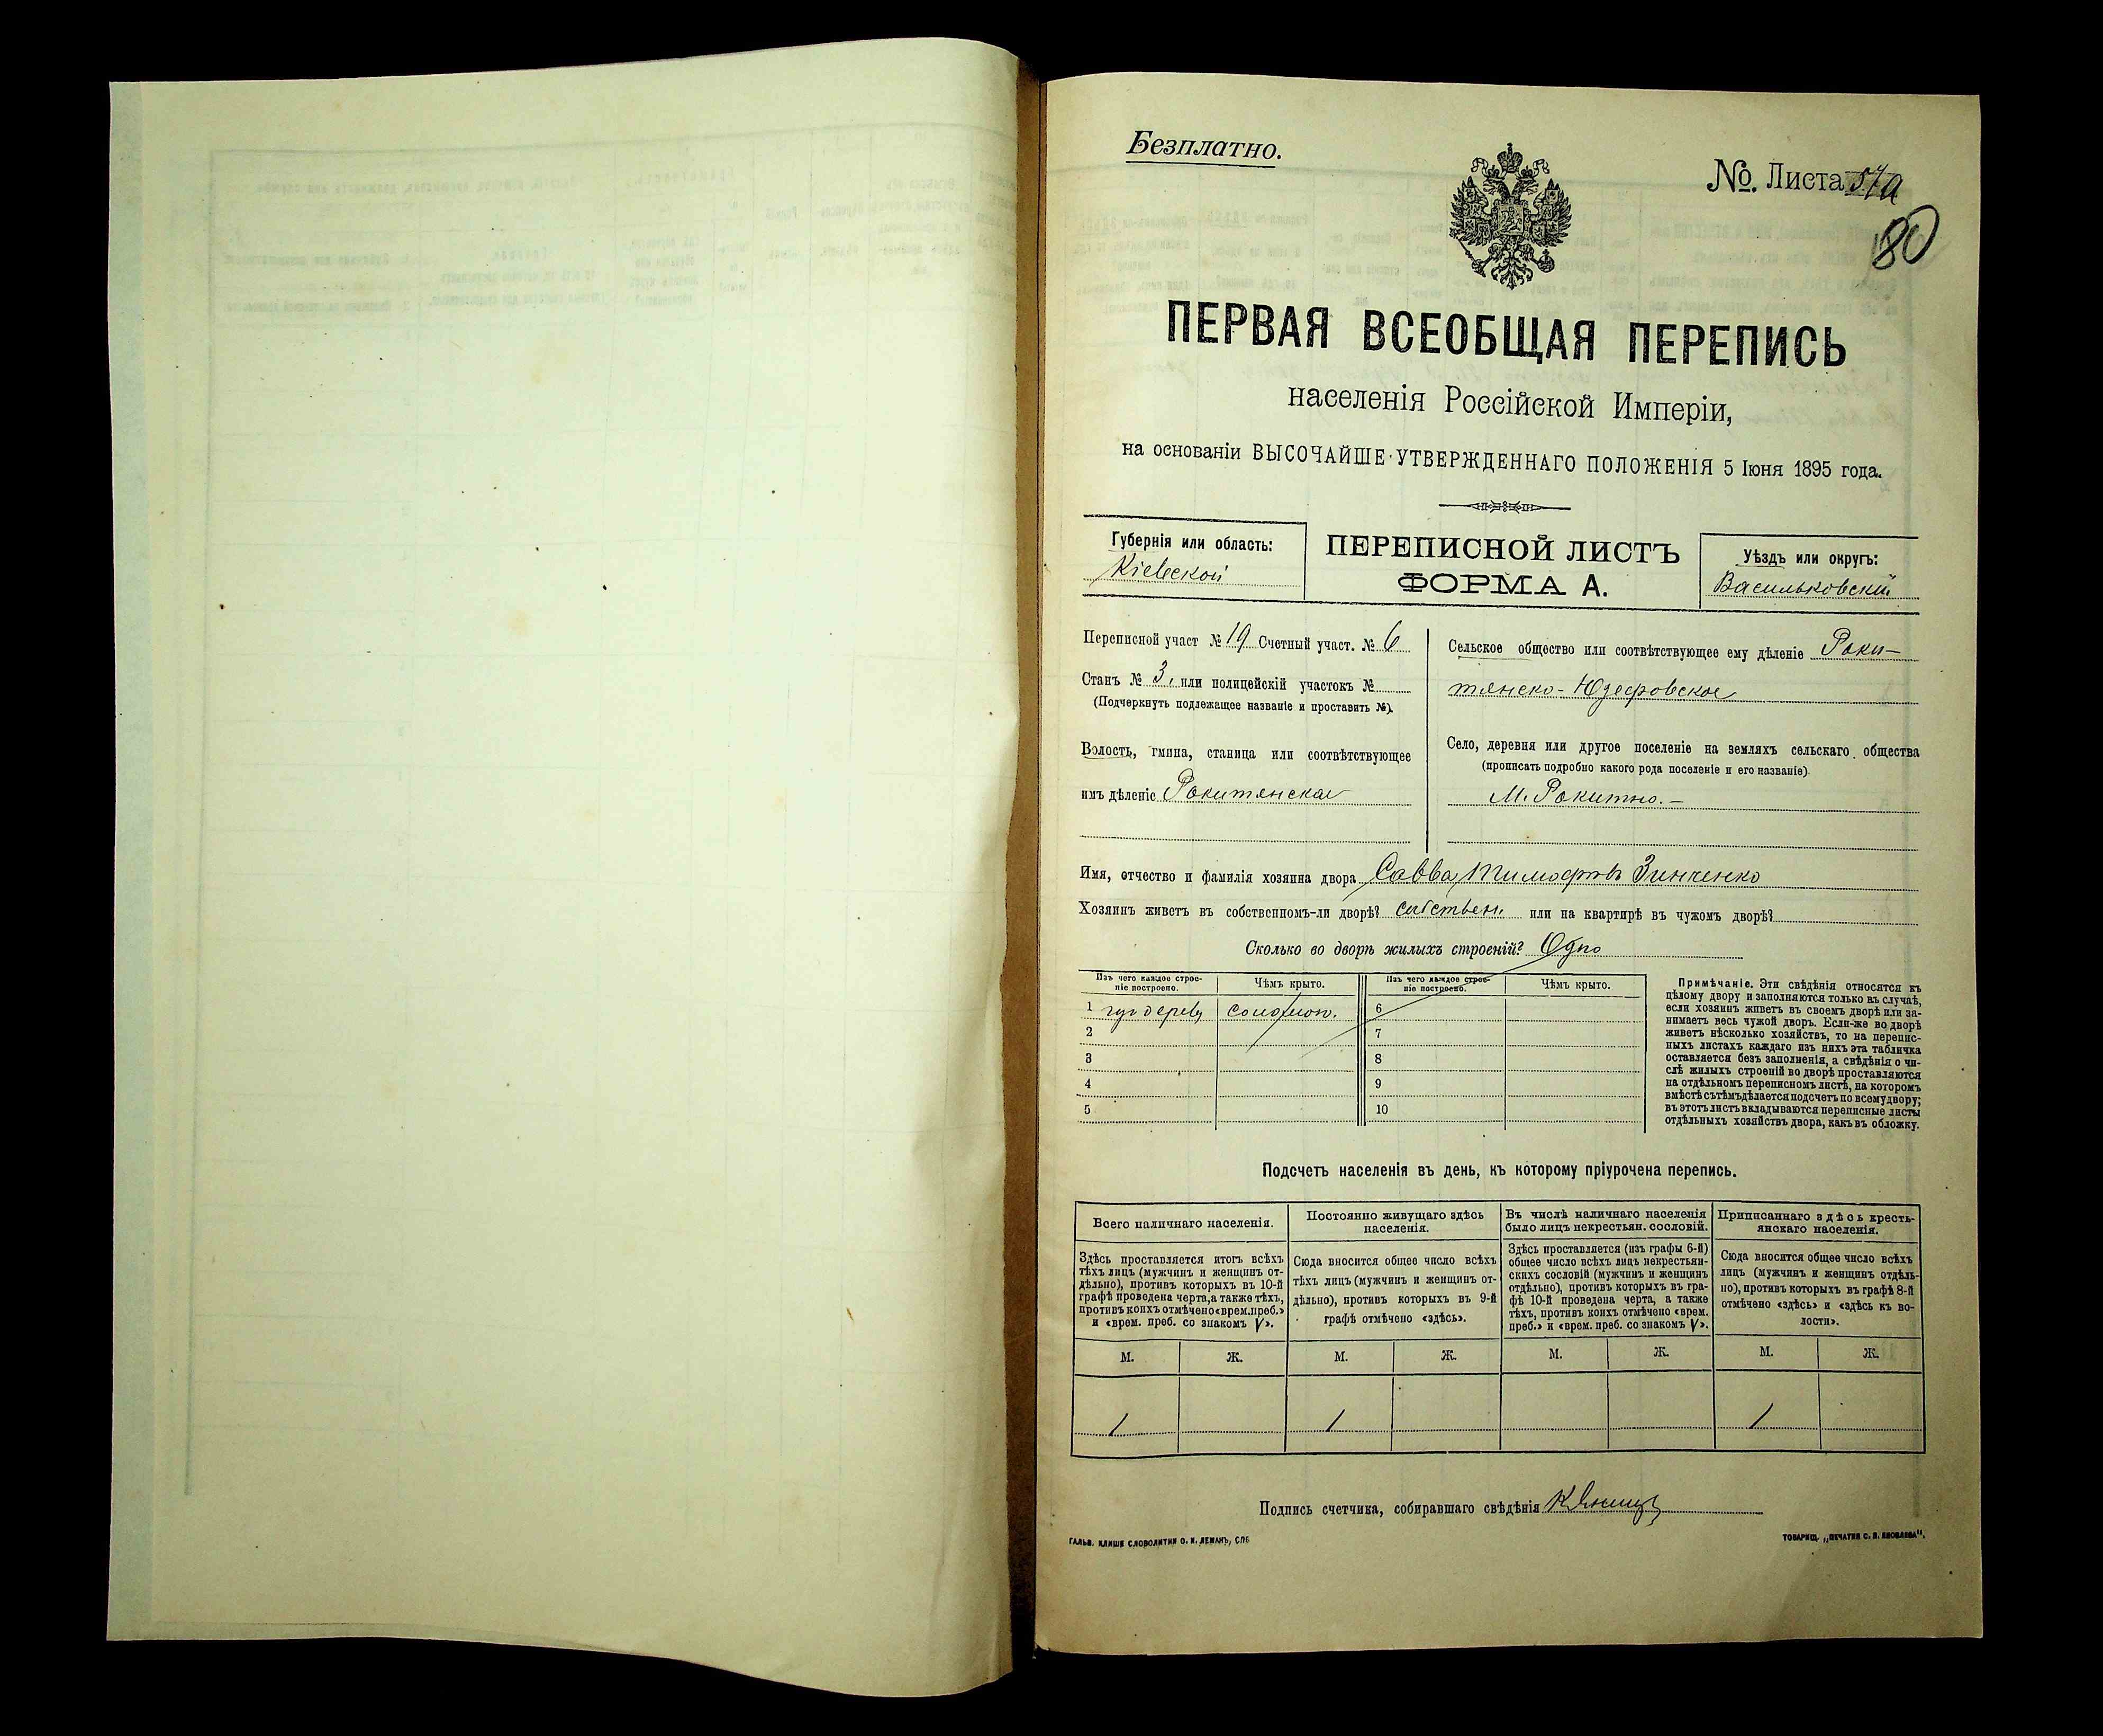 Безплатно.
№. Листа 54а
80
ПЕРВАЯ ВСЕОБЩАЯ ПЕРЕПИСЬ
населенія Россійской Имперіи,
на основаніи ВЫСОЧАЙШЕ УТВЕРЖДЕННАГО ПОЛОЖЕНІЯ 5 Іюня 1895 года.
Губернія или область:
Кіевской
ПЕРЕПИСНОЙ ЛИСТЪ
ФОРМА А.
Уѣздъ или округъ:
Васильковскій
Переписной участ № 19 Счетный участ. № 6
Станъ № 3, или полицейскій участокъ №
(Подчеркнуть подлежащее названіе и проставить №).
Волость, гмина, станица или соотвѣтствующее
имъ дѣленіе Рокитянская
Сельское общество или соотвѣтствующее ему дѣленіе Роки-
тянско-Юзефовское
Село, деревня или другое поселеніе на земляхъ сельскаго общества
(прописать подробно какого рода поселеніе и его названіе).
М. Рокитно. —
Имя, отчество и фамилія хозяина двора Савва Тимофѣевъ Зинченко
Хозяинъ живетъ въ собственномъ-ли дворѣ? собствен. или на квартирѣ въ чужомъ дворѣ?
Сколько во дворѣ жилыхъ строеній? Одно
Изъ чего каждое строе-
ніе построено.
Чѣмъ крыто.
Изъ чего каждое строе-
ніе построено.
Чѣмъ крыто.
1 соломон. 6
2 7
3 8
4 9
5 10
Примѣчаніе. Эти свѣдѣнія относятся къ
цѣлому двору и заполняются только въ случаѣ,
если хозяинъ живетъ въ своемъ дворѣ или за-
нимаетъ весь чужой дворъ. Если-же во дворѣ
живетъ нѣсколько хозяйствъ, то на перепис-
ныхъ листахъ каждаго изъ нихъ эта табличка
оставляется безъ заполненія, а свѣдѣнія о чи-
слѣ жилыхъ строеній во дворѣ проставляются
на отдѣльномъ переписномъ листѣ, на которомъ
вмѣстѣ съ тѣмъ дѣлается подсчетъ по всему двору;
въ этотъ листъ вкладываются переписные листы
отдѣльныхъ хозяйствъ двора, какъ въ обложку.
Подсчетъ населенія въ день, къ которому пріурочена перепись.
Всего наличнаго населенія.
Здѣсь проставляется итогъ всѣхъ
тѣхъ лицъ (мужчинъ и женщинъ от-
дѣльно), противъ которыхъ въ 10-й
графѣ проведена черта, а также тѣхъ,
противъ коихъ отмѣчено «врем. преб.»
и «врем. преб. со знакомъ V».
Постоянно живущаго здѣсь
населенія.
Сюда вносится общее число всѣхъ
тѣхъ лицъ (мужчинъ и женщинъ от-
дѣльно), противъ которыхъ въ 9-й
графѣ отмѣчено «здѣсь».
Въ числѣ наличнаго населенія
было лицъ некрестьян. сословій.
Здѣсь проставляется (изъ графы 6-й)
общее число всѣхъ лицъ некрестьян-
скихъ сословій (мужчинъ и женщинъ
отдѣльно), противъ которыхъ въ гра-
фѣ 10-й проведена черта, а также
тѣхъ, противъ коихъ отмѣчено «врем.
преб.» и «врем. преб. со знакомъ V».
Приписаннаго здѣсь кресть-
янскаго населенія.
Сюда вносится общее число всѣхъ
лицъ (мужчинъ и женщинъ отдѣль-
но), противъ которыхъ въ графѣ 8-й
отмѣчено «здѣсь» и «здѣсь къ во-
лости».
М. Ж. М. Ж. М. Ж. М. Ж.
1 1 1
Подпись счетчика, собиравшаго свѣдѣнія
ГАЛЬВ. КЛИШЕ СЛОВОЛИТНИ О. И. ЛЕМАНЪ, СПБ
ТОВАРИЩ. „ПЕЧАТНЯ С. П. ЯКОВЛЕВА“.